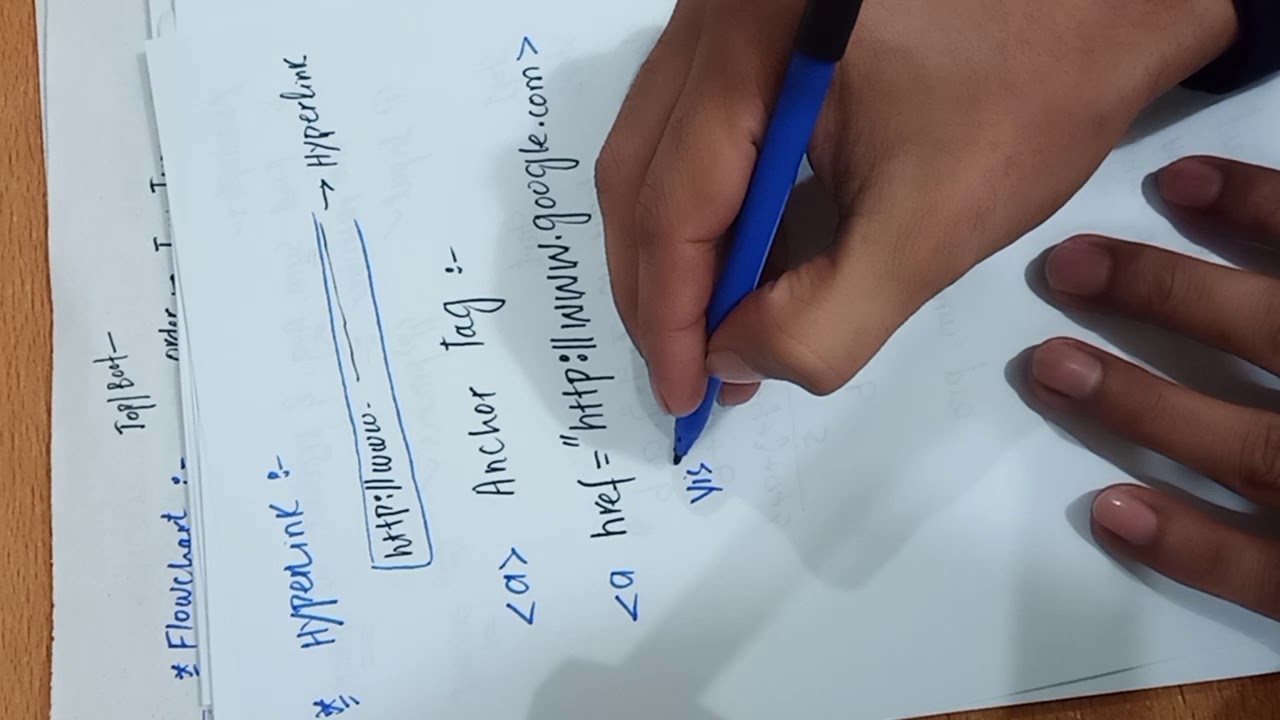 Top/Boot-
order
* Flowchart :-
* Hyperlink :-
http://www. → Hyperlink
<a> Anchor Tag :-
<a href="http://www.google.com>
Vis